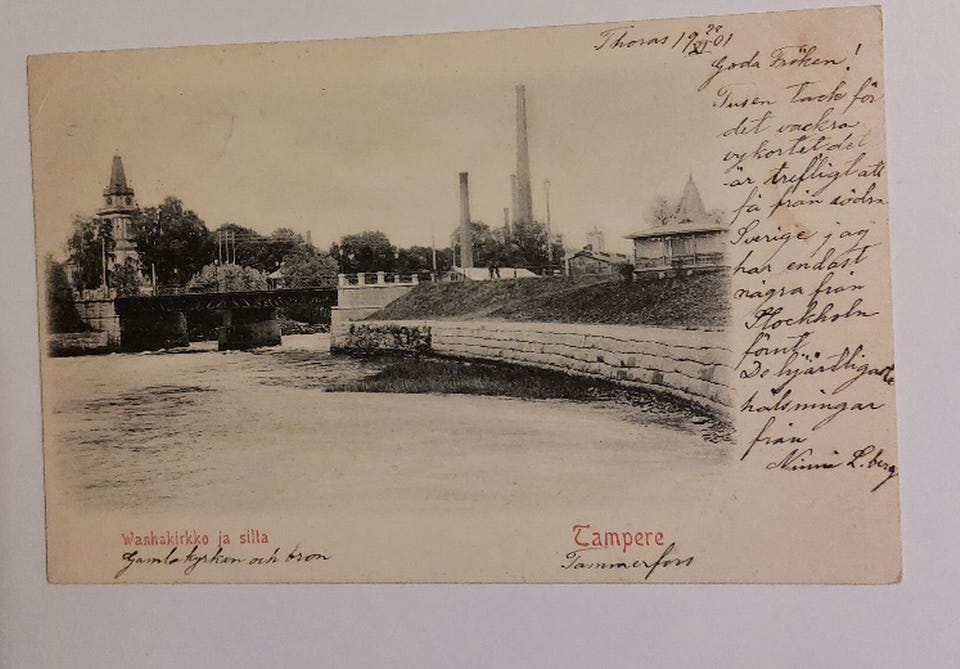 Thoras 19 28/XI 01
Goda Fröken!
Tusen tack för
det vackra
vykortet det
är trefligt att
få från södra
Sverige jag
har endast
några från
Stockholm
förut.
De hjärtligaste
hälsningar
från
Ninni L.berg
Wanhakirkko ja silta
Tampere
Gamla kyrkan och bron
Tammerfors